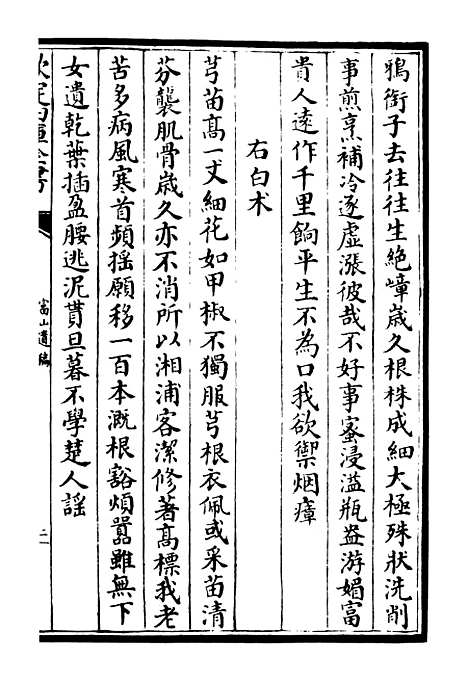 鴉銜子去往往生絶嶂歲久根株成細大極殊狀洗削
事煎烹補冷逐虛漲彼哉不好事蜜浸溢瓶盎游媚富
貴人逺作千里餉平生不為口我欲禦烟瘴
右白术
芎苗髙一丈細花如甲椒不獨服芎根衣佩或采苗清
芬襲肌骨歳久亦不消所以湘浦客潔修著髙標我老
苦多病風寒首頻揺願移一百本溉根豁煩嚚雖無下
女遺乾葉插盈腰逃泥貰旦暮不學楚人謡
欽定四庫全書
富山遺稿
二